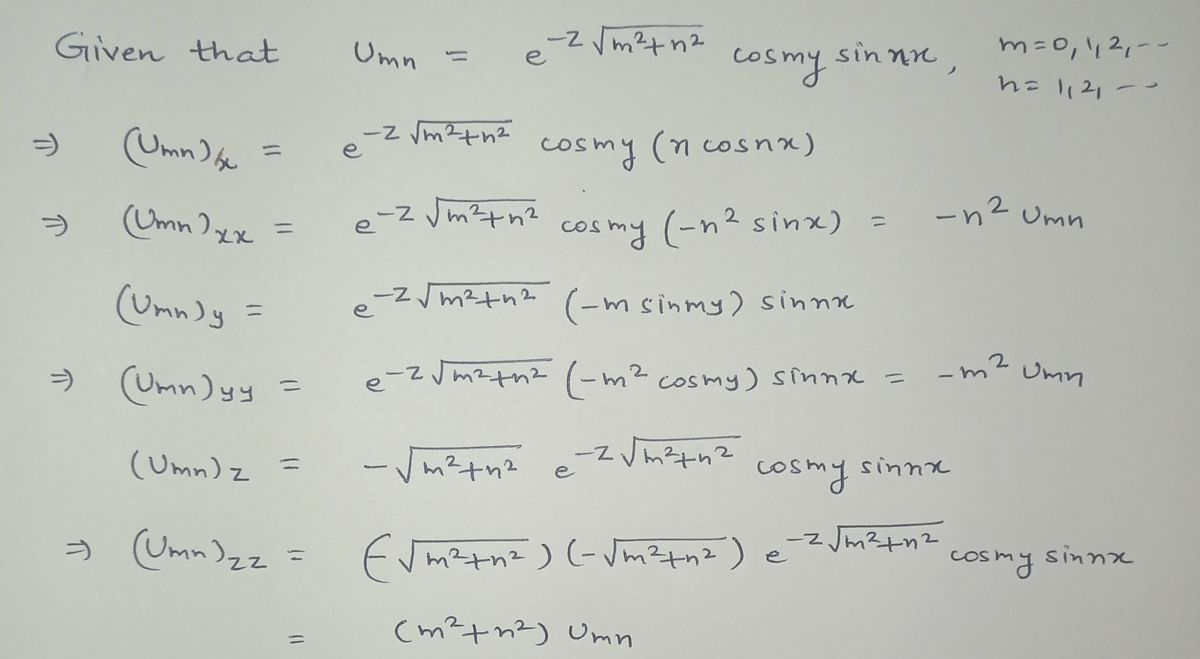 Given that Umn = e^{-z√(m²+n²)} cosmy sin nx, m=0,1,2,--
n= 1,2, --
⇒ (Umn)x = e^{-z√(m²+n²)} cosmy (n cosnx)
⇒ (Umn)xx = e^{-z√(m²+n²)} cosmy (-n² sinx) = -n² Umn
(Umn)y = e^{-z√(m²+n²)} (-m sinmy) sinnx
⇒ (Umn)yy = e^{-z√(m²+n²)} (-m² cosmy) sinnx = -m² Umn
(Umn)z = -√(m²+n²) e^{-z√(m²+n²)} cosmy sinnx
⇒ (Umn)zz = (-√(m²+n²)) (-√(m²+n²)) e^{-z√(m²+n²)} cosmy sinnx
= (m²+n²) Umn